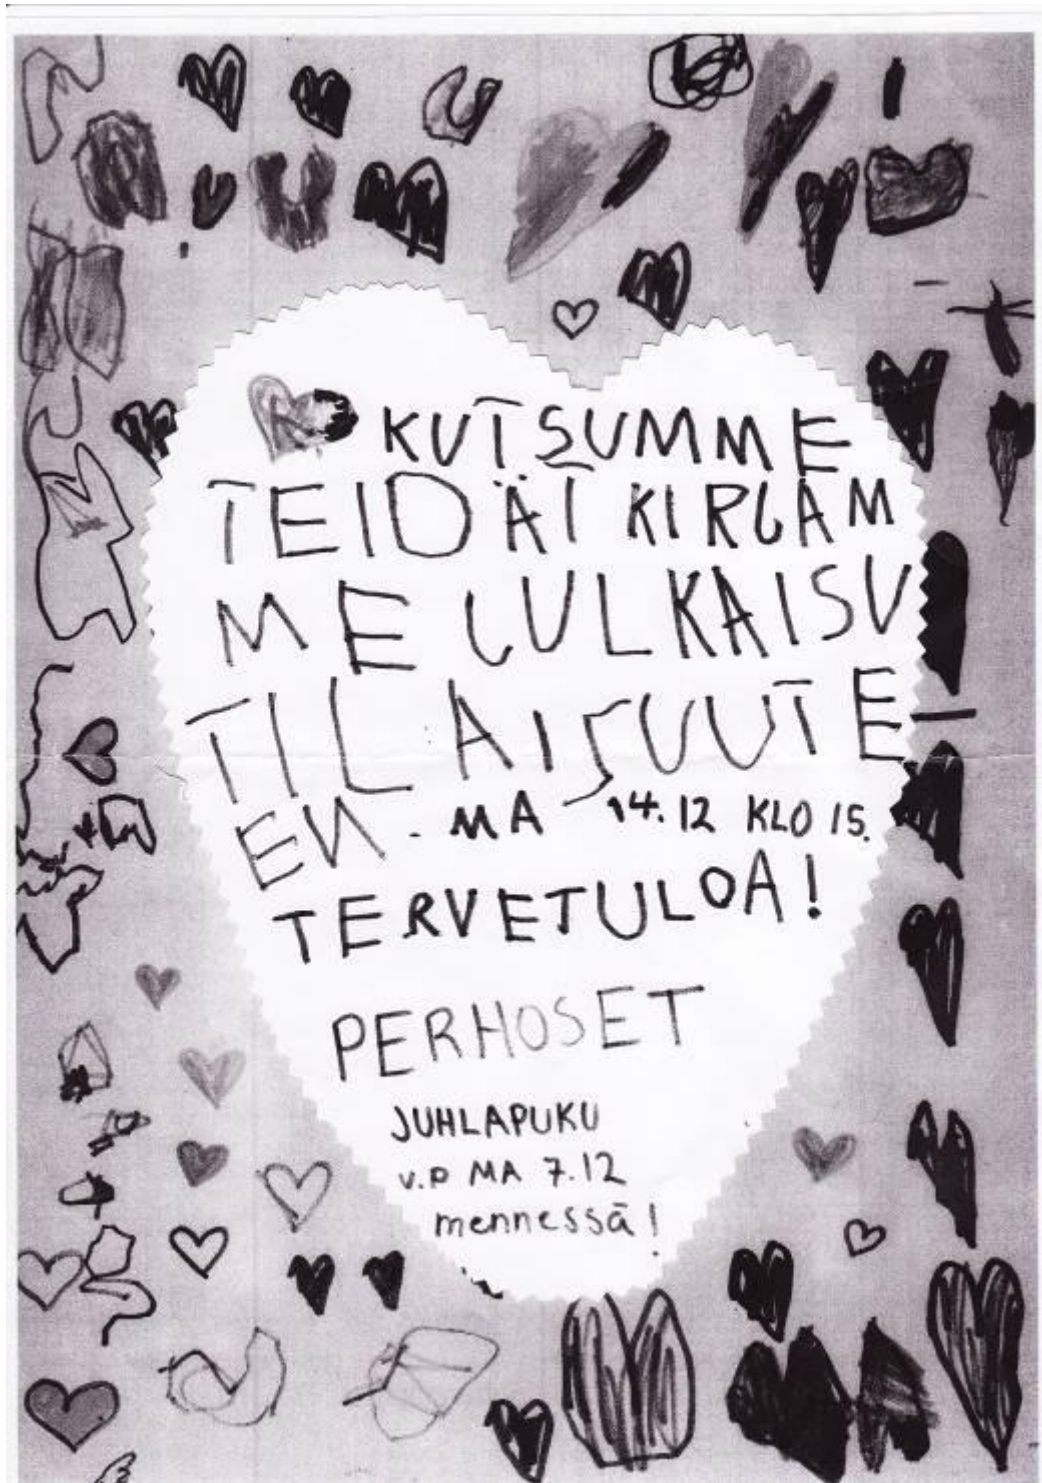 KUTSUMME
TEIDÄT KIRJAM
ME JULKAISU
TILAISUUTE
EN. MA 14.12 KLO 15.
TERVETULOA!
PERHOSET
JUHLAPUKU
V.P MA 7.12
mennessä!